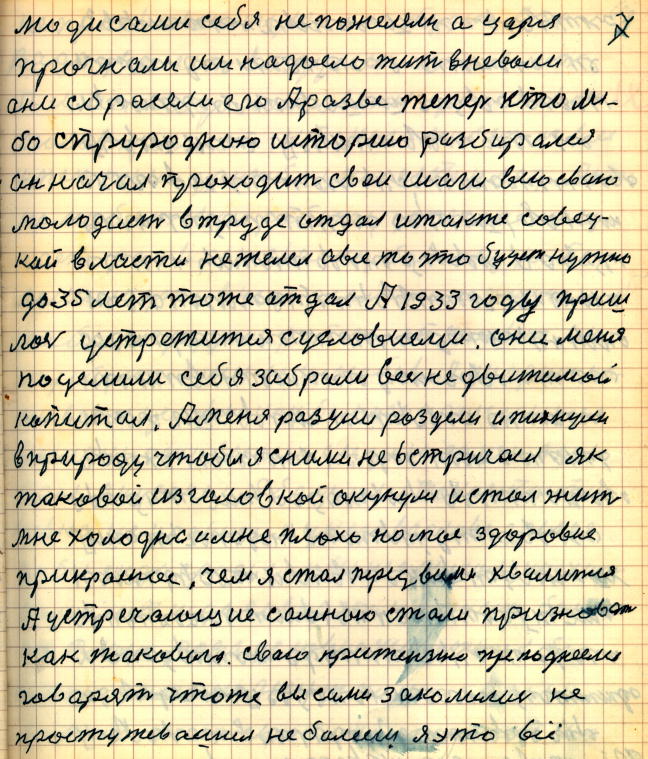 люди сами себя не пожелели а царя 7
прогнали им надоело жит вневоли
они сбросели его А разве тепер кто ли-
бо сприродною историю разбирался
он начал проходит свои шаги всю сваю
молодаст втруде отдал и также совец-
кой власти нежелел а все то что будет нужно
до 35 лет тоже отдал А 1933 году приш
лос устретится сусловием. они меня
поцелили себя забрали все не движимой
капитал. А меня разули роздели и пихнули
вприроду чтобы я сними не встричался як
таковой из головкой окунул и стал жит
мне холодно и мне плохо но мое здоровие
прикрасное, чем я стал перед вами хвалится
А устречающие самною стали признават
как такового. сваю притензию преподнесли
говарят что же вы сами закомилис не
простужеваешся не болееш я это всё